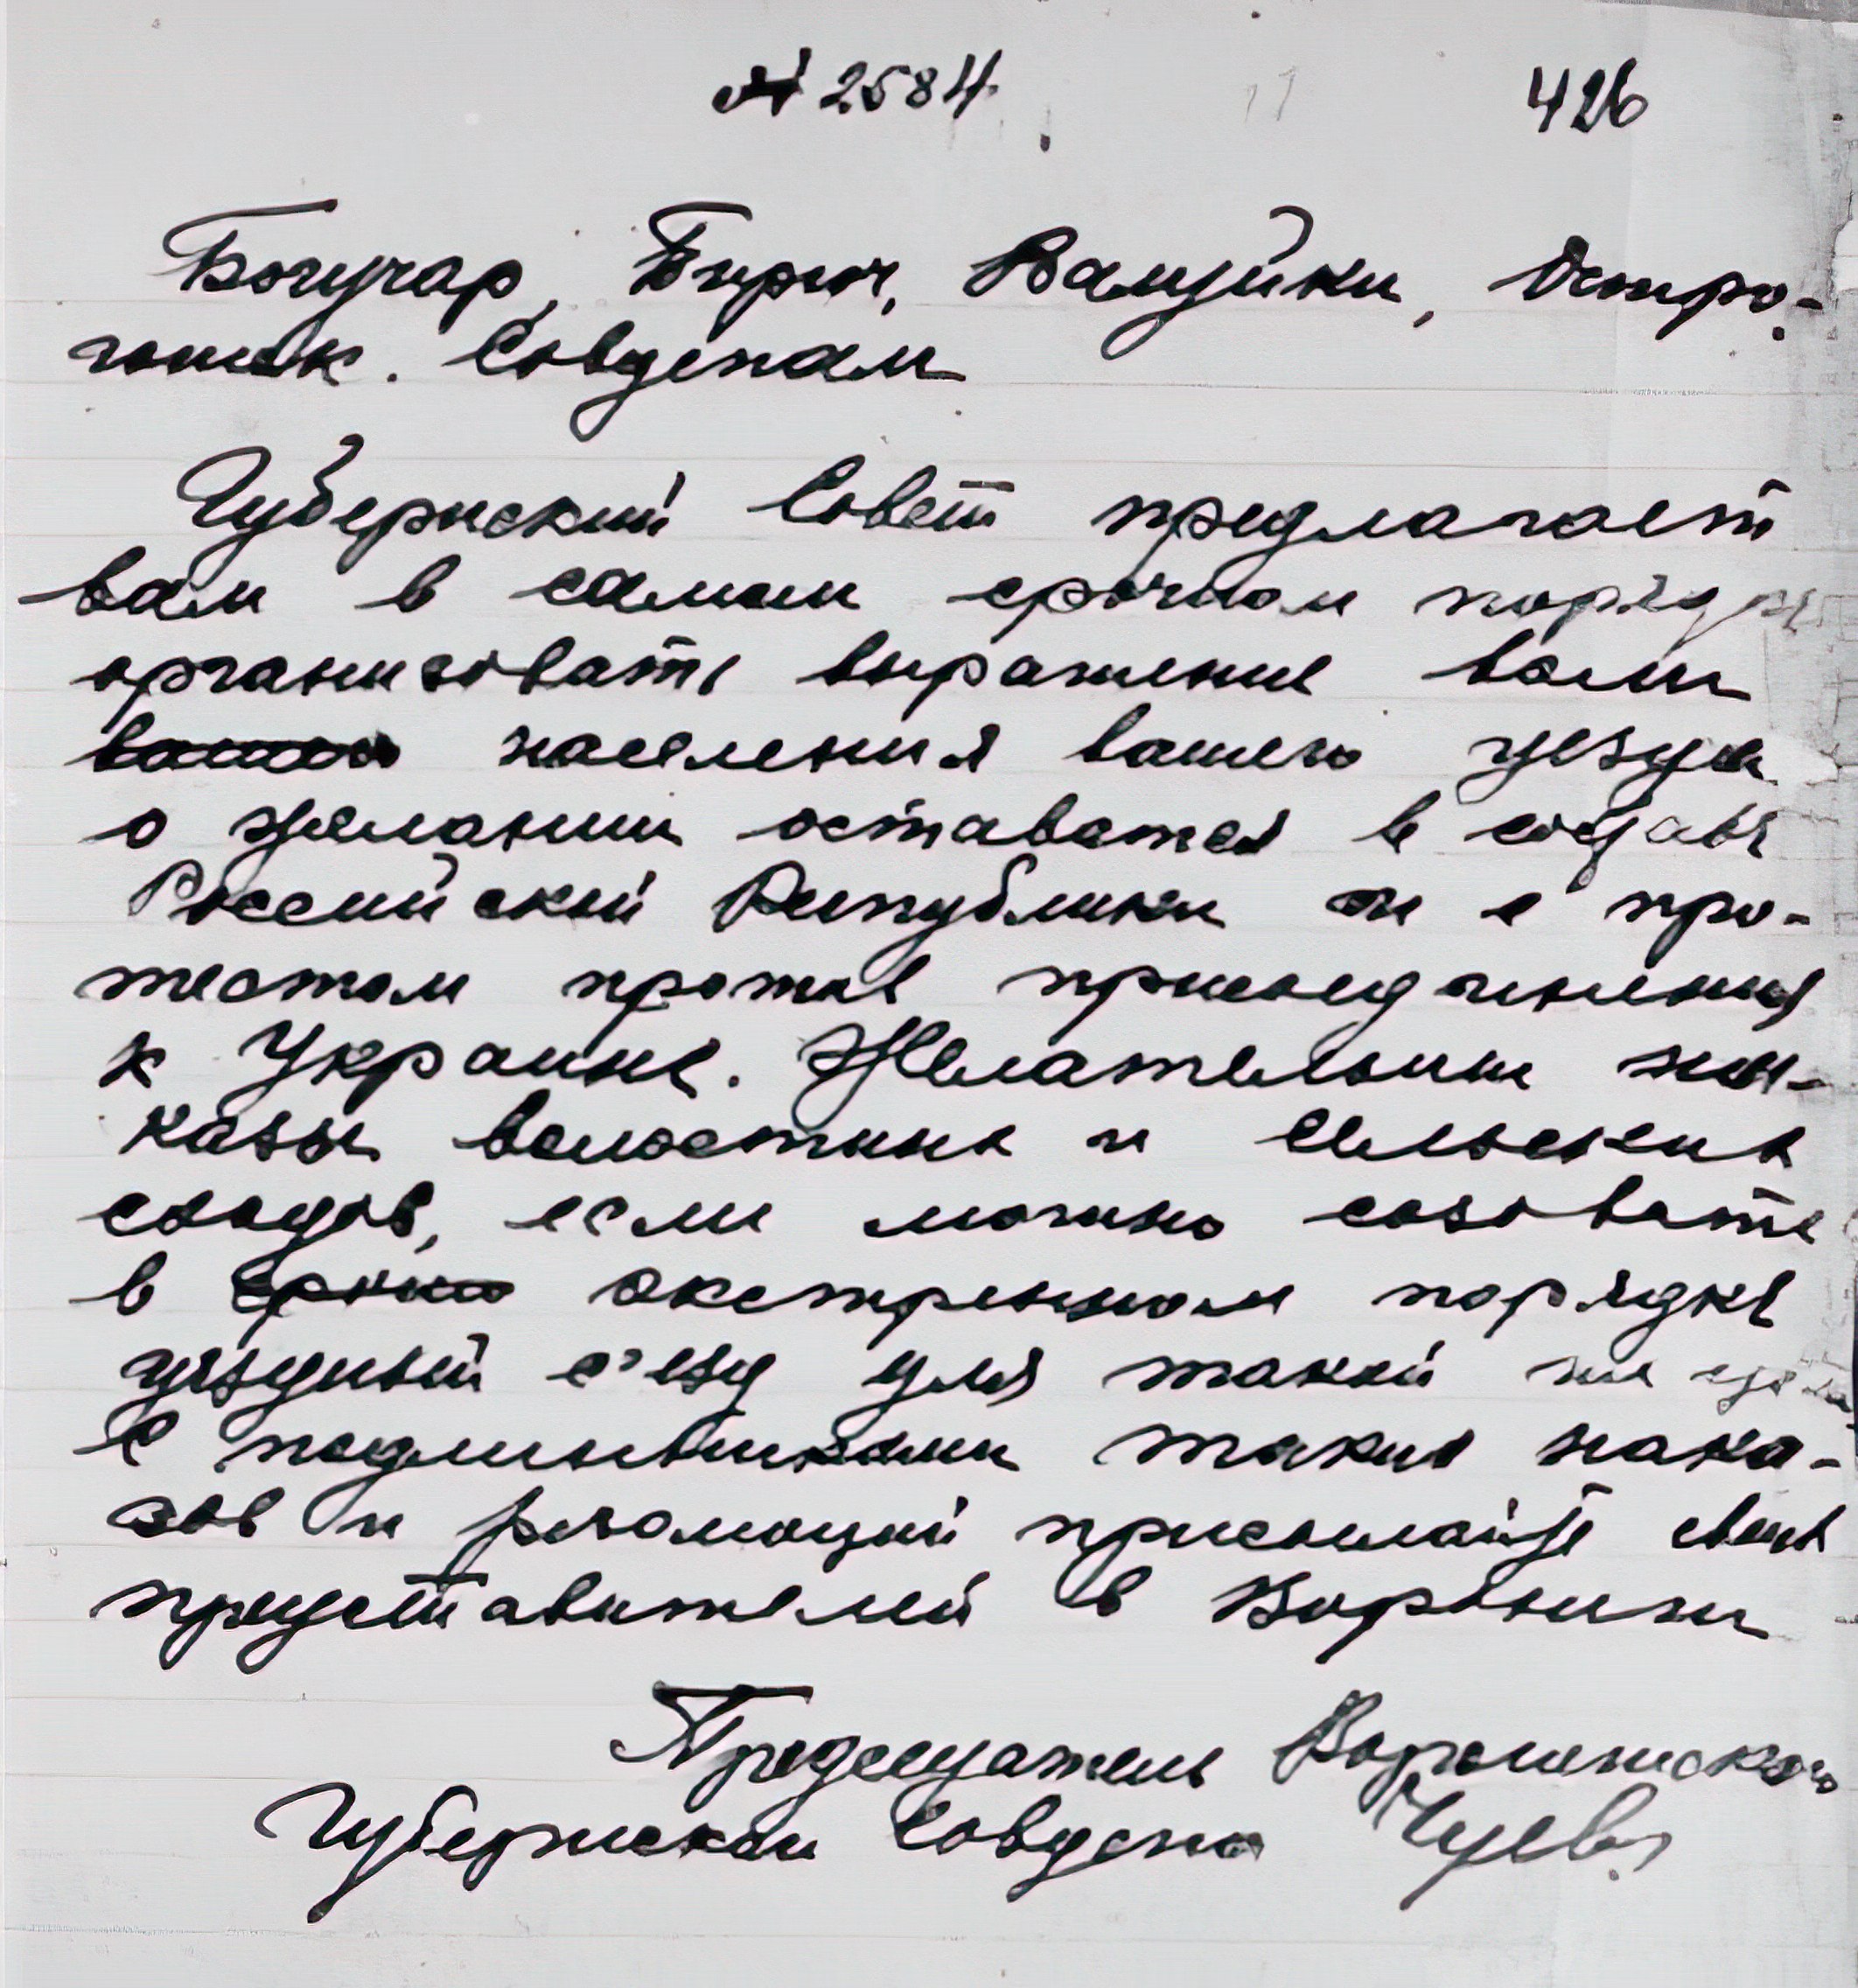 № 2584
426
Богучар, Бирюч, Валуйки, Остро-
гожск. Совдепам
Губернский Совет предлагает
вам в самом срочном порядке
организовать выражение воли
населения вашего уезда
о желании оставаться в составе
Российской Республики и с про-
тестом против присоединения
к Украине. Желательны на-
казы волостных и сельских
сходов, если можно созовите
в экстренном порядке
уездный с'езд для такой же
С подлинниками таких нака-
зов и резолюций присылайте своих
представителей в Воронеж
Председатель Воронежского
Губернскаи Совдепа Чуев